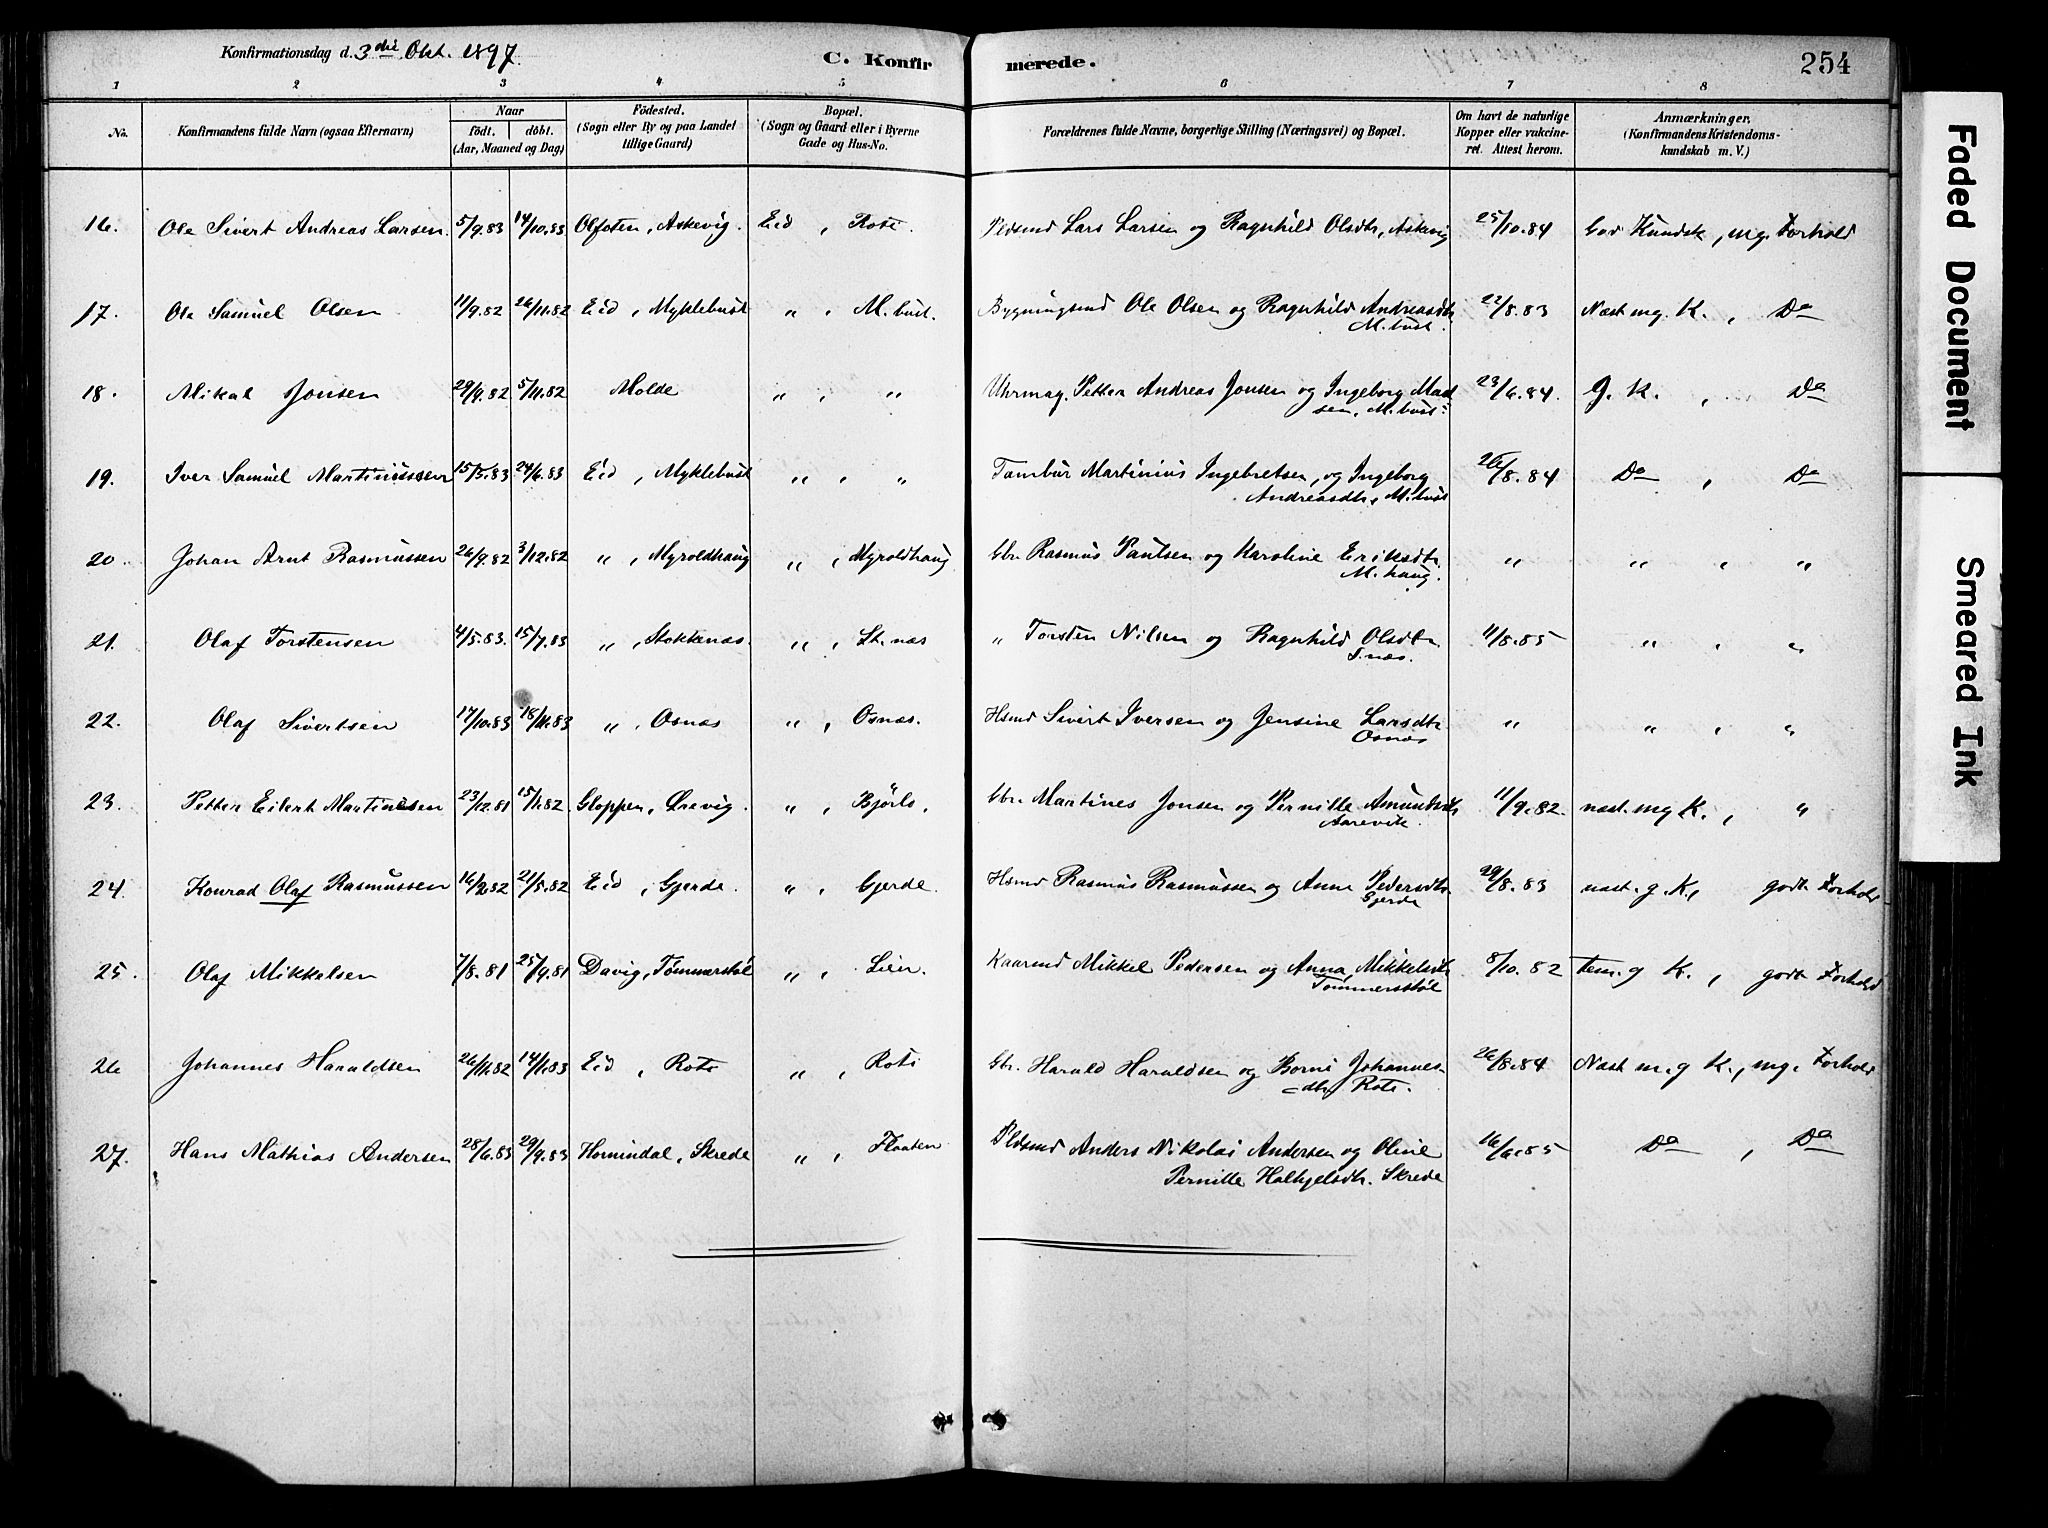 Konfirmationsdag d. 3die Okt. 1897. C. Konfirmerede. 254
1 2 3 4 5 6 7 8
No. Konfirmandens fulde Navn (ogsaa Efternavn) Naar födt. döbt. (Aar, Maaned og Dag) Födested. (Sogn eller By og paa Landet tillige Gaard) Bopæl. (Sogn og Gaard eller i Byerne Gade og Hus-No. Forældrenes fulde Navne, borgerlige Stilling (Næringsvei) og Bopæl. Om havt de naturlige Kopper eller vakcineret. Attest herom. Anmærkninger. (Konfirmandens Kristendomskundskab m. V.)
16. Ole Sivert Andreas Larsen 5/9.83 14/10.83 Olfoten, Askevig. Eid, Rote. Pldsmd Lars Larsen og Ragnhild Olsdtr, Askevig 25/10.84 God Kundsk, mg. Forhold
17. Ole Samuel Olsen 11/9.82 26/11.82 Eid, Myklebust „ , M.bust. Bygningsmd Ole Olsen og Ragnhild Andreasdtr
M.bust. 22/8.83 Næst mg. K. , Do
18. Mikal Jonsen 29/9.82 5/11.82 Molde „ , „ Uhrmag. Petter Andreas Jonsen og Ingeborg Mad
sen, M.bust. 23/6.84. G. K. , Do
19. Iver Samuel Martinussen 15/5.83 24/6.83 Eid, Myklebust „ , „ Tambur Martinius Ingebretsen, og Ingeborg
Andreasdtr, M.bust 26/8.84 Do , Do
20. Johan Arnt Rasmussen 26/9.82 3/12.82 „ , Myroldhaug „ , Myroldhaug Gbr. Rasmus Paulsen og Karoline Eriksdtr
M.haug. „ „ , „
21. Olaf Torstensen 4/5.83. 15/7.83 „ , Stokkenæs. „ , St.næs „ Torsten Nilsen og Ragnhild Olsdtr
S.næs. 11/8.85 „ , „
22. Olaf Sivertsen 17/10.83 18/11.83 „ , Osnæs „ , Osnæs. Hsmd Sivert Iversen og Jensine Larsdtr
Osnæs „ „ , „
23. Petter Eilert Martinesen 23/12.81 15/1.82. Gloppen, Ørevig. „ , Bjørlo, Gbr. Martines Jonsen og Pernille Amundsdtr
Aarevik. 11/9.82. næst. mg K. , „
24. Konrad Olaf Rasmussen 16/2.82 21/5.82 Eid, Gjerde. „ , Gjerde. Hsmd Rasmus Rasmussen og Anne Pedersdtr
Gjerde 29/8.83 næst. g K, godt Forhold
25. Olaf Mikkelsen 7/8.81 25/9.81 Davig, Tømmerstøl „ , Lien. Kaarmd Mikkel Pedersen og Anna Mikkelsdtr
Tømmerstøl 8/10.82 tem. g K. , godt Forhold
26 Johannes Haraldsen 26/11.82 14/1.83 Eid, Rote „ , Rote Gbr. Harald Haraldsen og Borni Johannes-
dtr Rote. 26/8.84 Næst m. g K., mg. Forhold
27. Hans Mathias Andersen 28/6.83 29/9.83 Hornindal, Skrede „ , Flaaten Pldsmd Anders Nikolai Andersen og Oline
Pernille Halkjelsdtr. Skrede 16/6.85 Do , Do
Faded Document
Smeared Ink